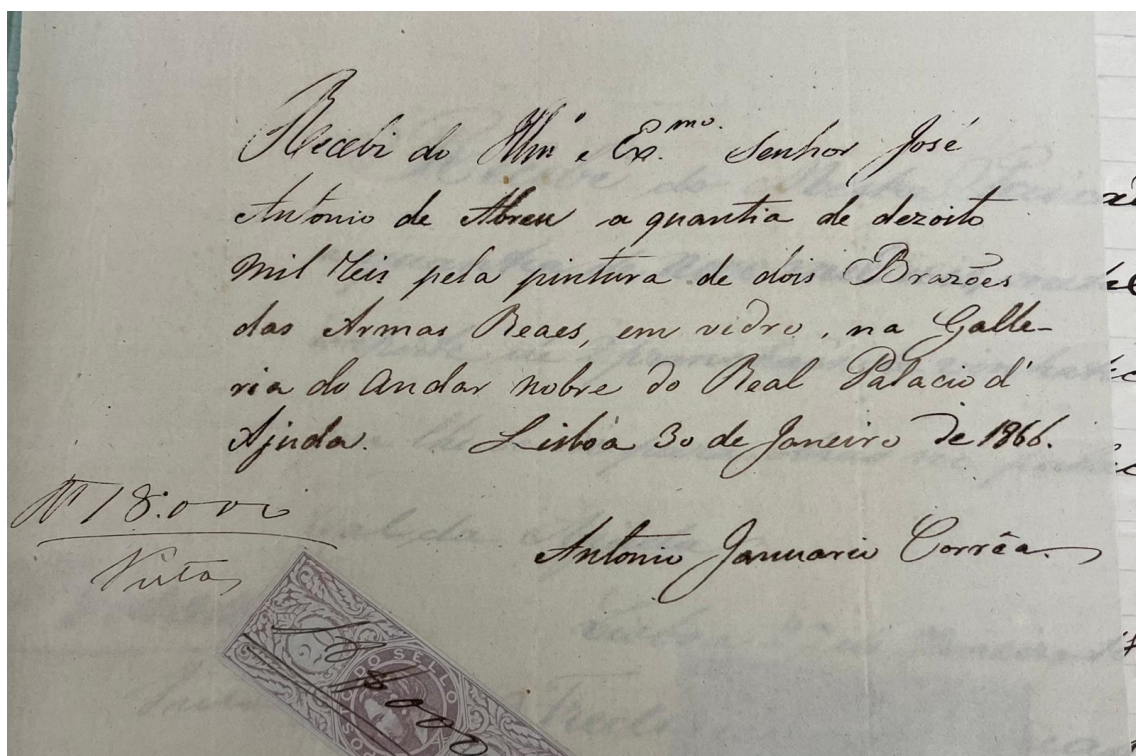 Recebi do Illmº e Exmo. Senhor José
Antonio de Abreu a quantia de dezoito
mil reis pela pintura de dois Brazões
das Armas Reaes, em vidro, na Galle-
ria do andar nobre do Real Palacio d'
Ajuda. Lisboa 30 de Janeiro de 1866.
18:000
Antonio Januario Corrêa.
DO SELLO